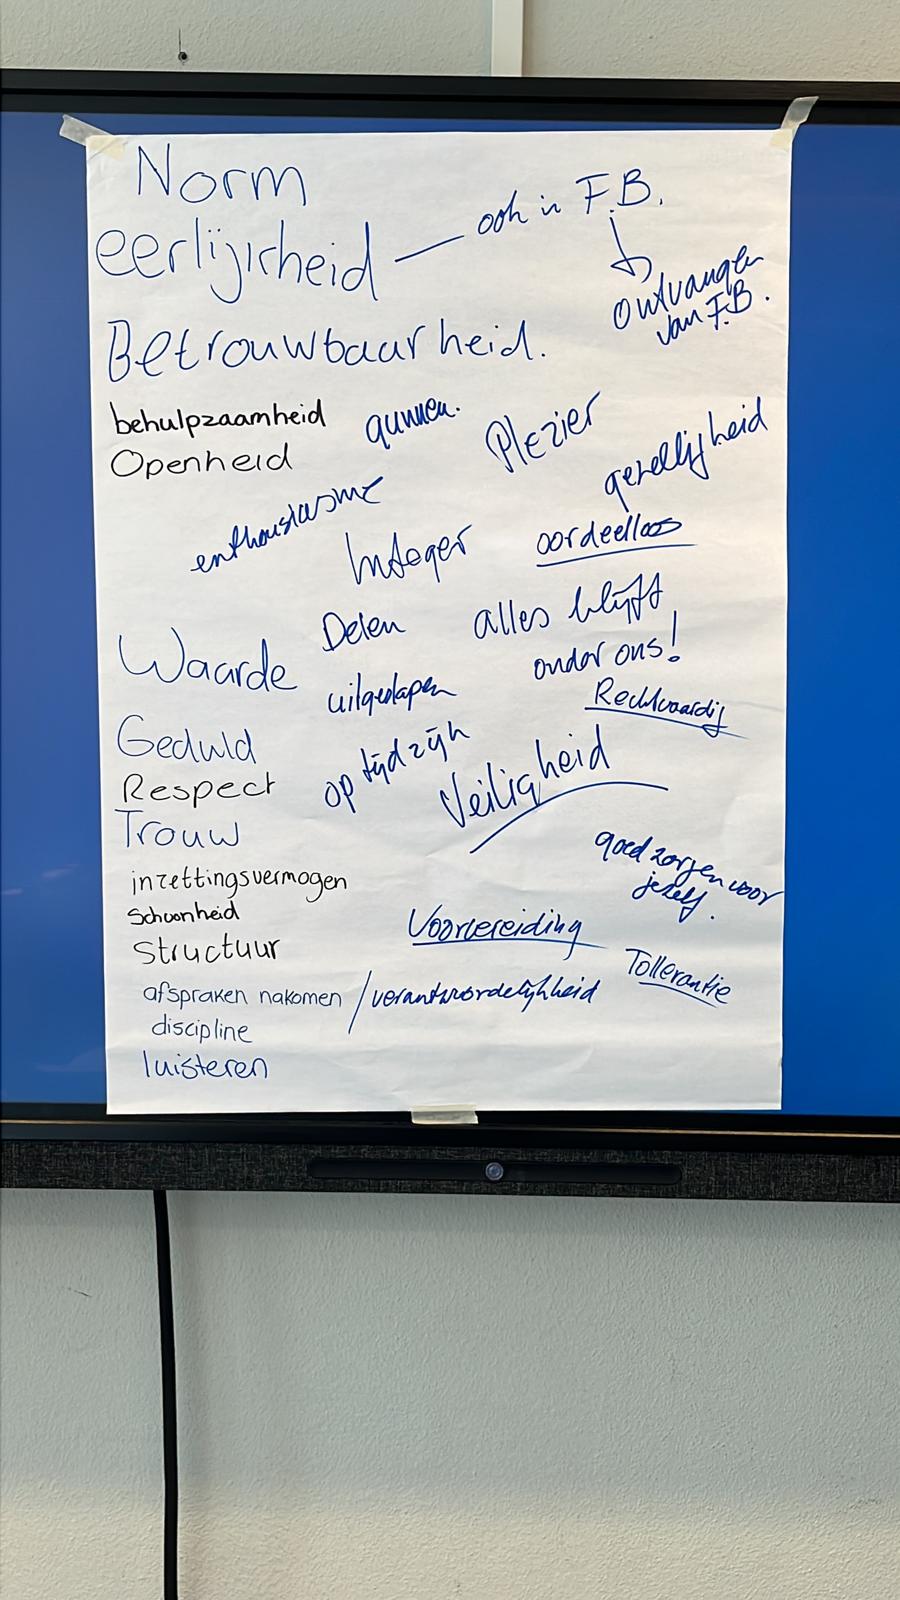 Norm
eerlijkheid — ooh in F.B.
ontvangen
van F.B.
Betrouwbaarheid.
behulpzaamheid
gunnen.
Plezier
Openheid
gezelligheid
enthousiasme
Integer
oordeelloos
Delen
alles blijft
onder ons!
Waarde
uitgeslapen
Rechtvaardig
Geduld
op tijd zijn
Veiligheid
Respect
Trouw
goed zorgen voor
jezelf.
inzettingsvermogen
Schoonheid
Voorbereiding
Structuur
Tollerantie
afspraken nakomen / verantwoordelijkheid
discipline
luisteren